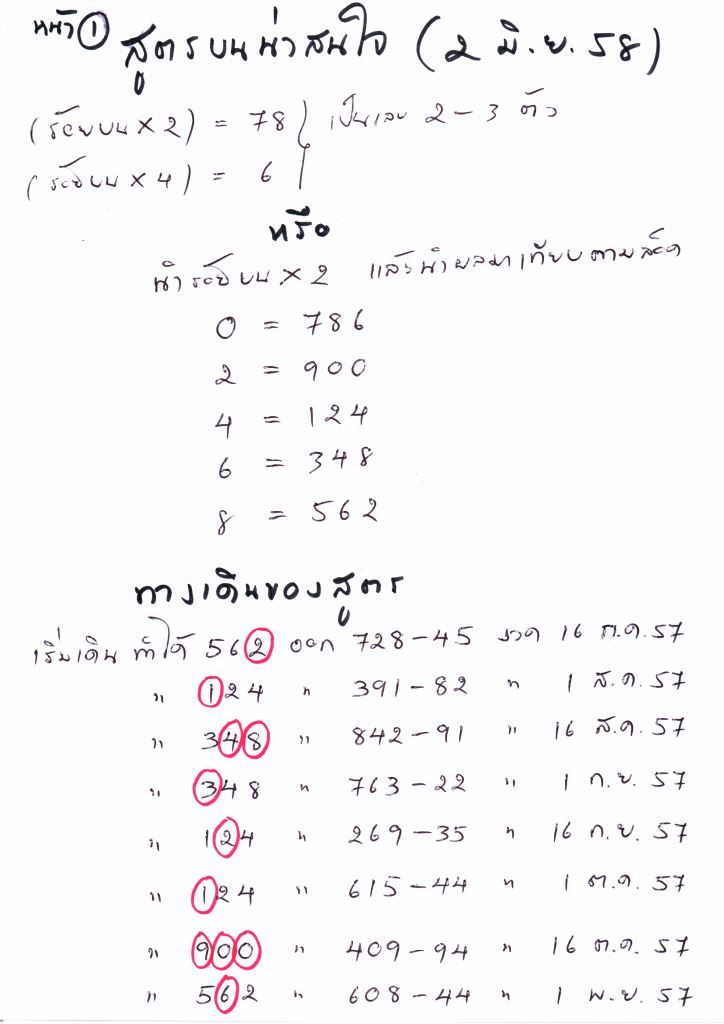 หน้า ①
สูตรบนน่าสนใจ (2 มิ.ย. 58)
(ร้อยบน × 2) = 78 เป็นเลข 2 - 3 ตัว
(ร้อยบน × 4) = 6
หรือ
นำร้อยบน × 2 แล้วนำผลมาเทียบตามสเต็ค
0 = 786
2 = 900
4 = 124
6 = 348
8 = 562
ทางเดินของสูตร
เริ่มเดิน ทำได้ 562 ออก 728-45 งวด 16 ก.ค. 57
" 124 " 391-82 " 1 ส.ค. 57
" 348 " 842-91 " 16 ส.ค. 57
" 348 " 763-22 " 1 ก.ย. 57
" 124 " 269-35 " 16 ก.ย. 57
" 124 " 615-44 " 1 ต.ค. 57
" 900 " 409-94 " 16 ต.ค. 57
" 562 " 608-44 " 1 พ.ย. 57